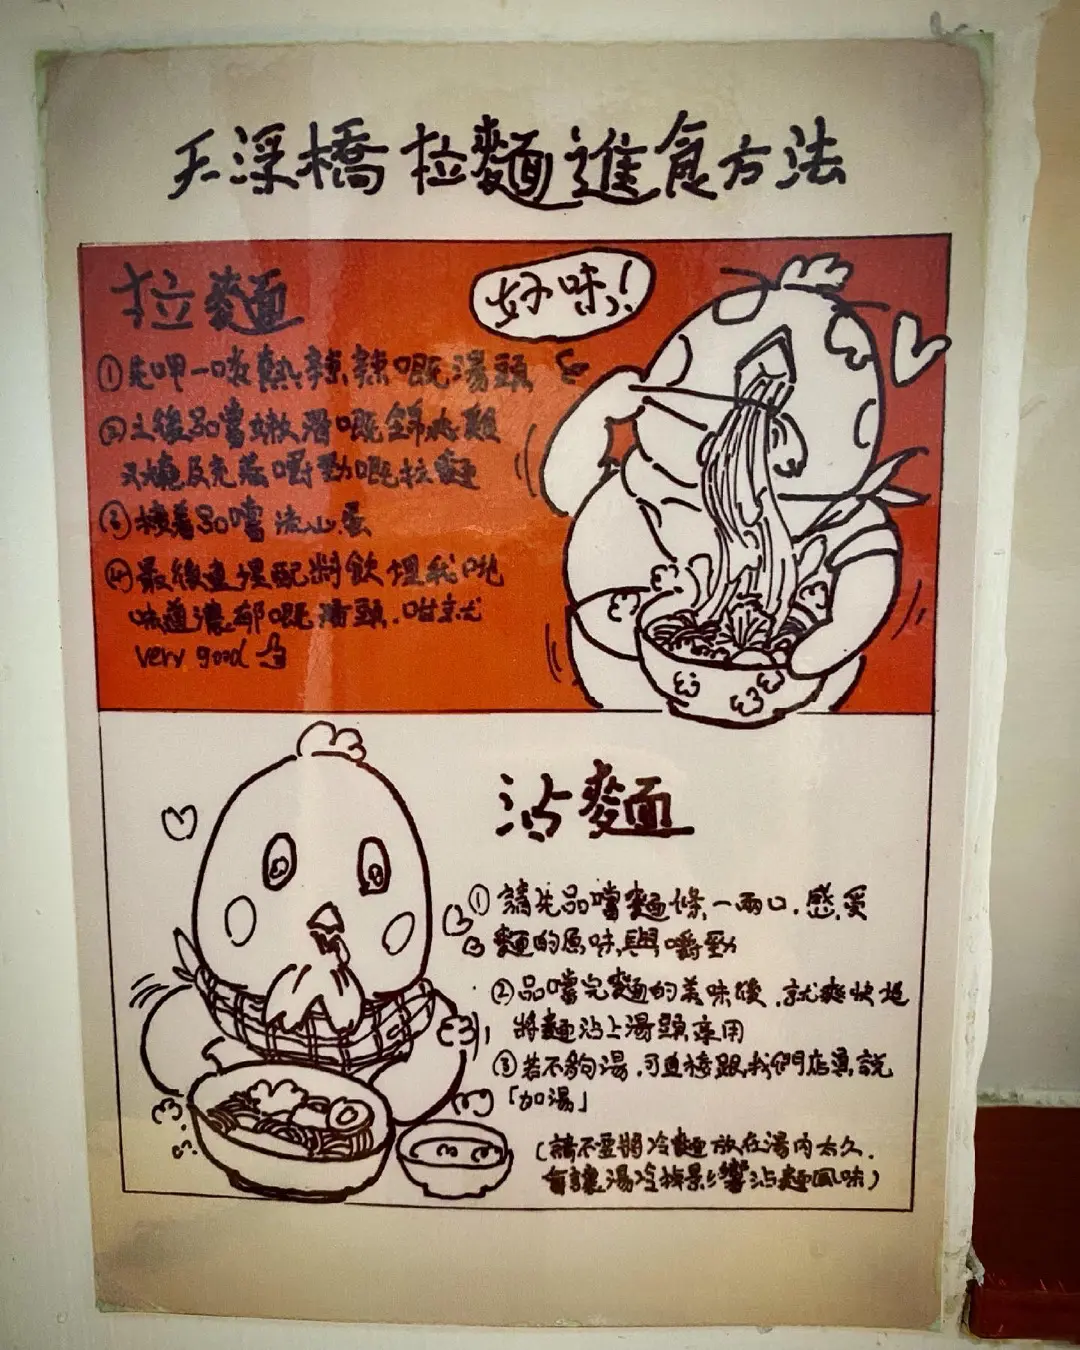 天深橋拉麵進食方法
拉麵
好味!
①先呷一啖熱辣辣嘅湯頭
②之後品嚐嫩滑嘅錦爽雞
叉燒及充滿嚼勁嘅拉麵
③接著品嚐流心蛋
④最後連埋配料飲埋我哋
味道濃郁嘅湯頭.咁就
very good
沾麵
①請先品嚐麵條一兩口.感受
麵的原味與嚼勁
②品嚐完麵的美味後.就爽快地
將麵沾上湯頭享用
③若不夠湯.可直接跟我們店員說
「加湯」
(請不要將冷麵放在湯內太久.
會讓湯冷掉影響沾麵風味)